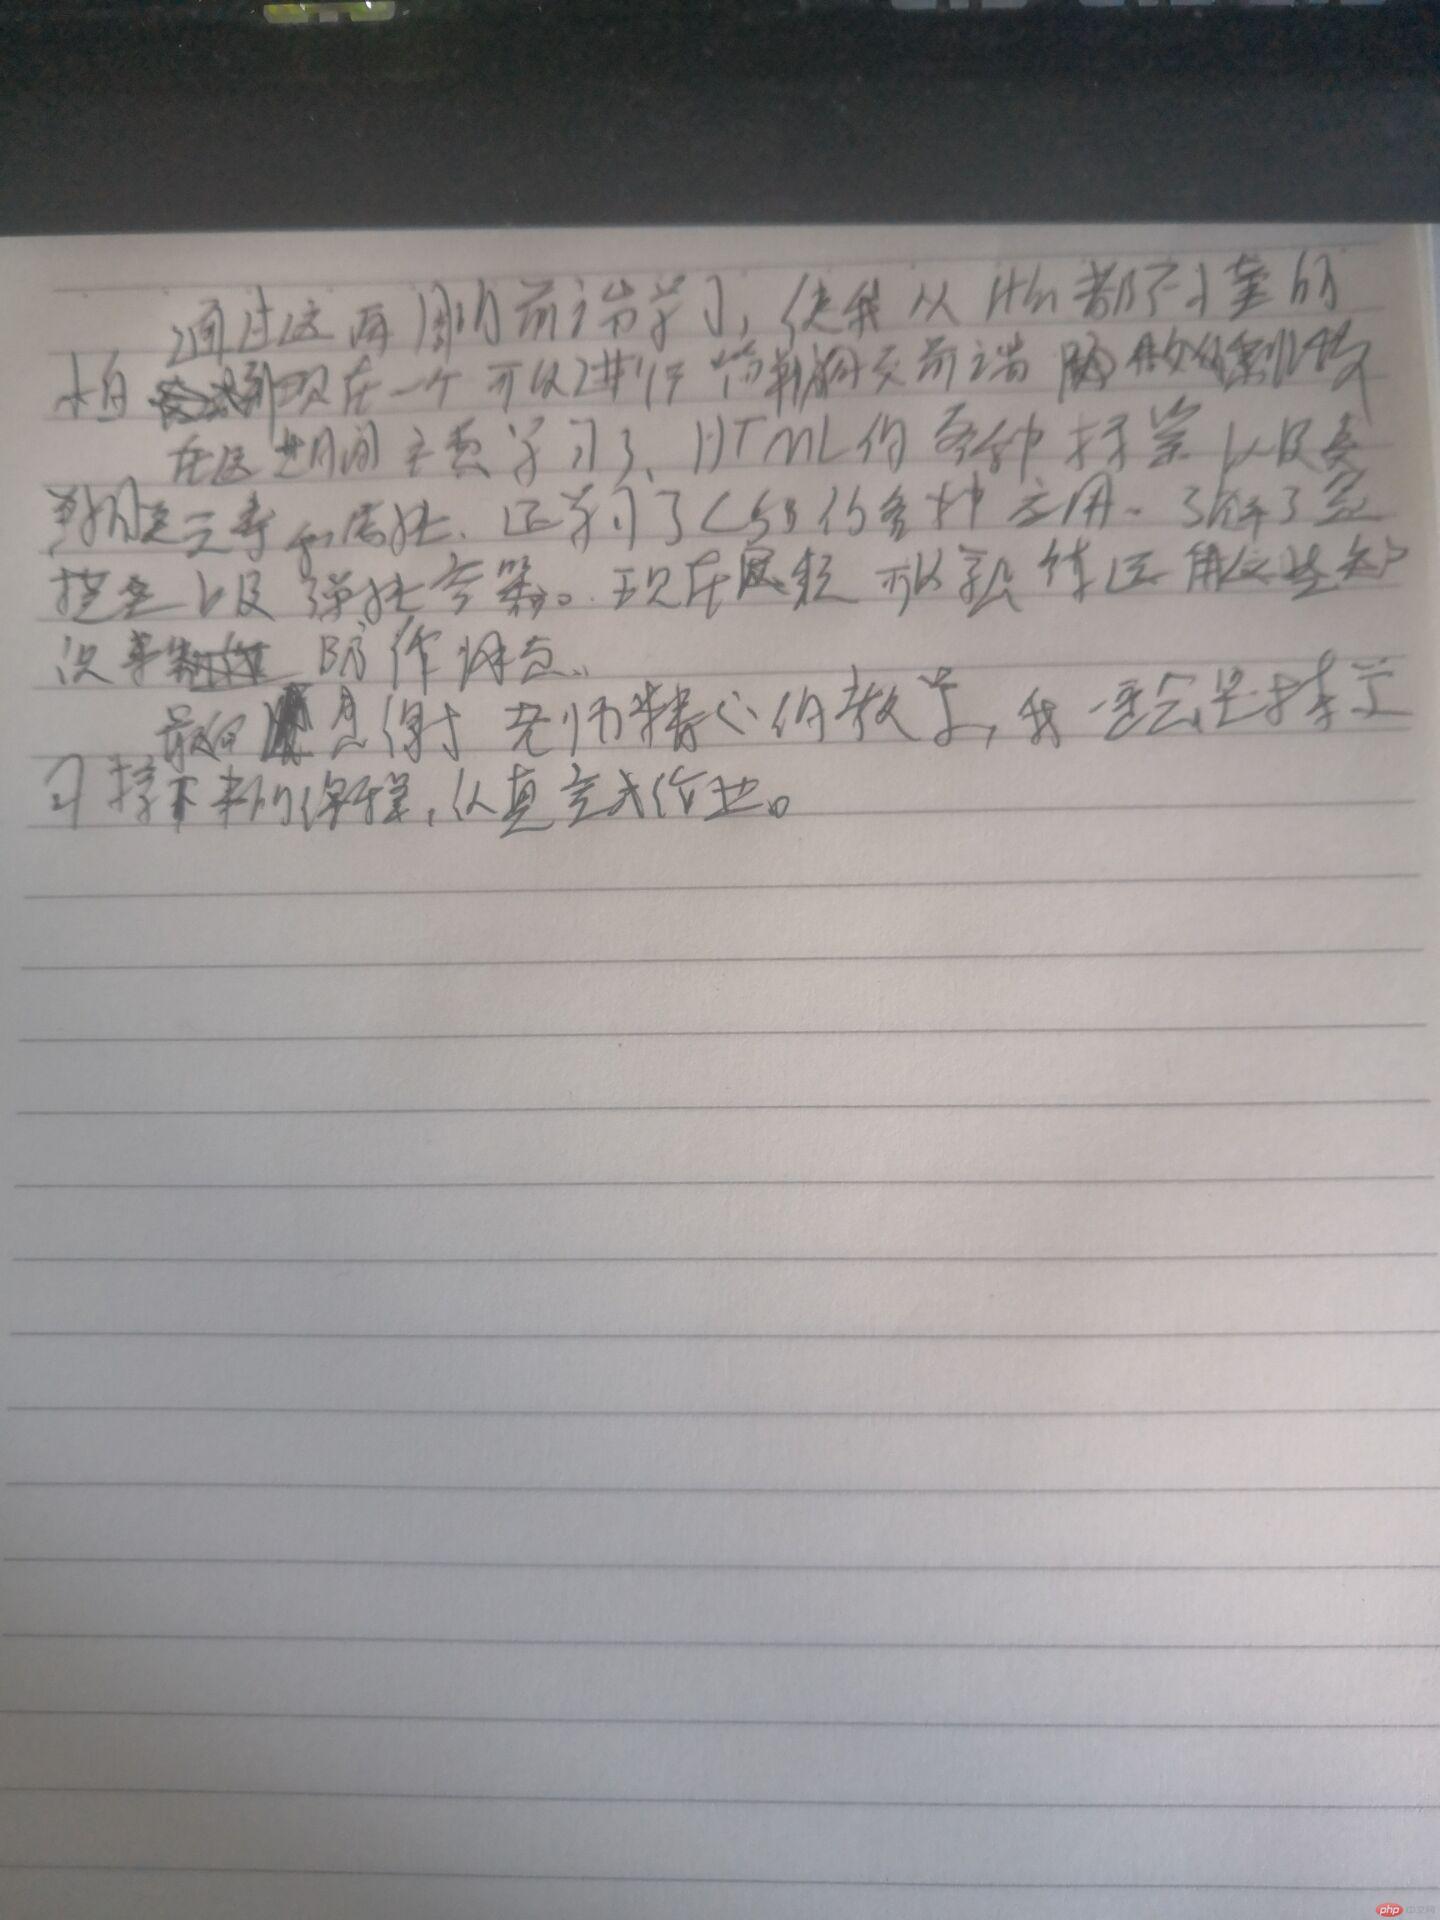 通过这两周的前端学习，使我从Htm都不懂的
小白到现在一个可以进行简单网页前端
在这期间主要学习了、HTML的各种标签以及
元素和属性、还学习了CSS的各种应用。了解了盒
模型以及弹性容器。现在已经可以熟练运用这些知
识来 防作网页。
最后 感谢老师精心的教学，我一定会坚持学
习接下来的课程，认真完成作业。
php 中文网